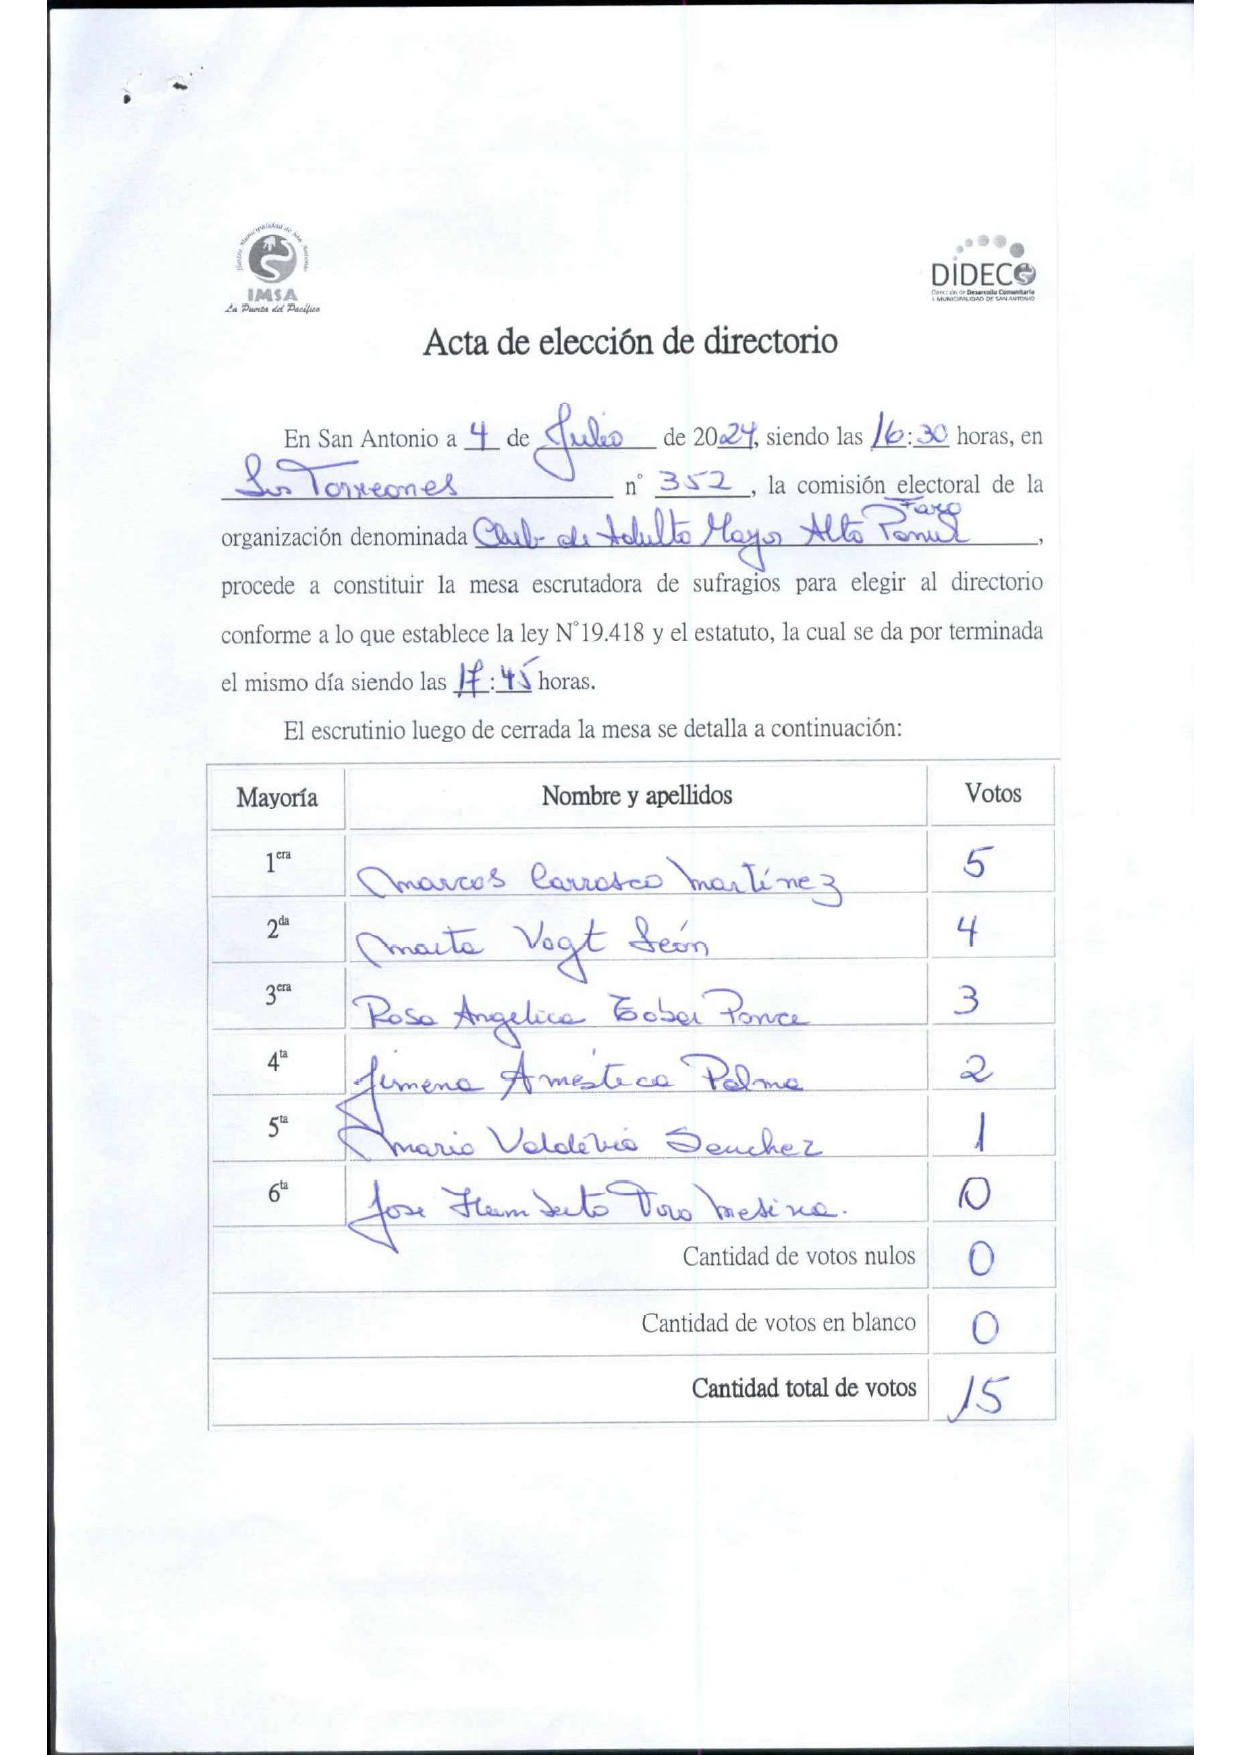 Ilustre Municipalidad de San Antonio
IMSA
La Punta del Pacífico
DIDECO
Dirección de Desarrollo Comunitario
I. MUNICIPALIDAD DE SAN ANTONIO
Acta de elección de directorio
En San Antonio a 4 de Julio de 2024, siendo las 16:30 horas, en
Los Torreones n° 352, la comisión electoral de la
Faro
organización denominada Club de Adulto Mayor Alto Panul,
procede a constituir la mesa escrutadora de sufragios para elegir al directorio
conforme a lo que establece la ley N°19.418 y el estatuto, la cual se da por terminada
el mismo día siendo las 17:45 horas.
El escrutinio luego de cerrada la mesa se detalla a continuación:
Mayoría Nombre y apellidos Votos
1era Marcos Carrasco Martínez 5
2da Marta Vogt León 4
3era Rosa Angelica Tobar Ponce 3
4ta Jimena Amestica Palma 2
5ta Mario Valdivia Sanchez 1
6ta Jose Humberto Toro Mesina. 0
Cantidad de votos nulos 0
Cantidad de votos en blanco 0
Cantidad total de votos 15